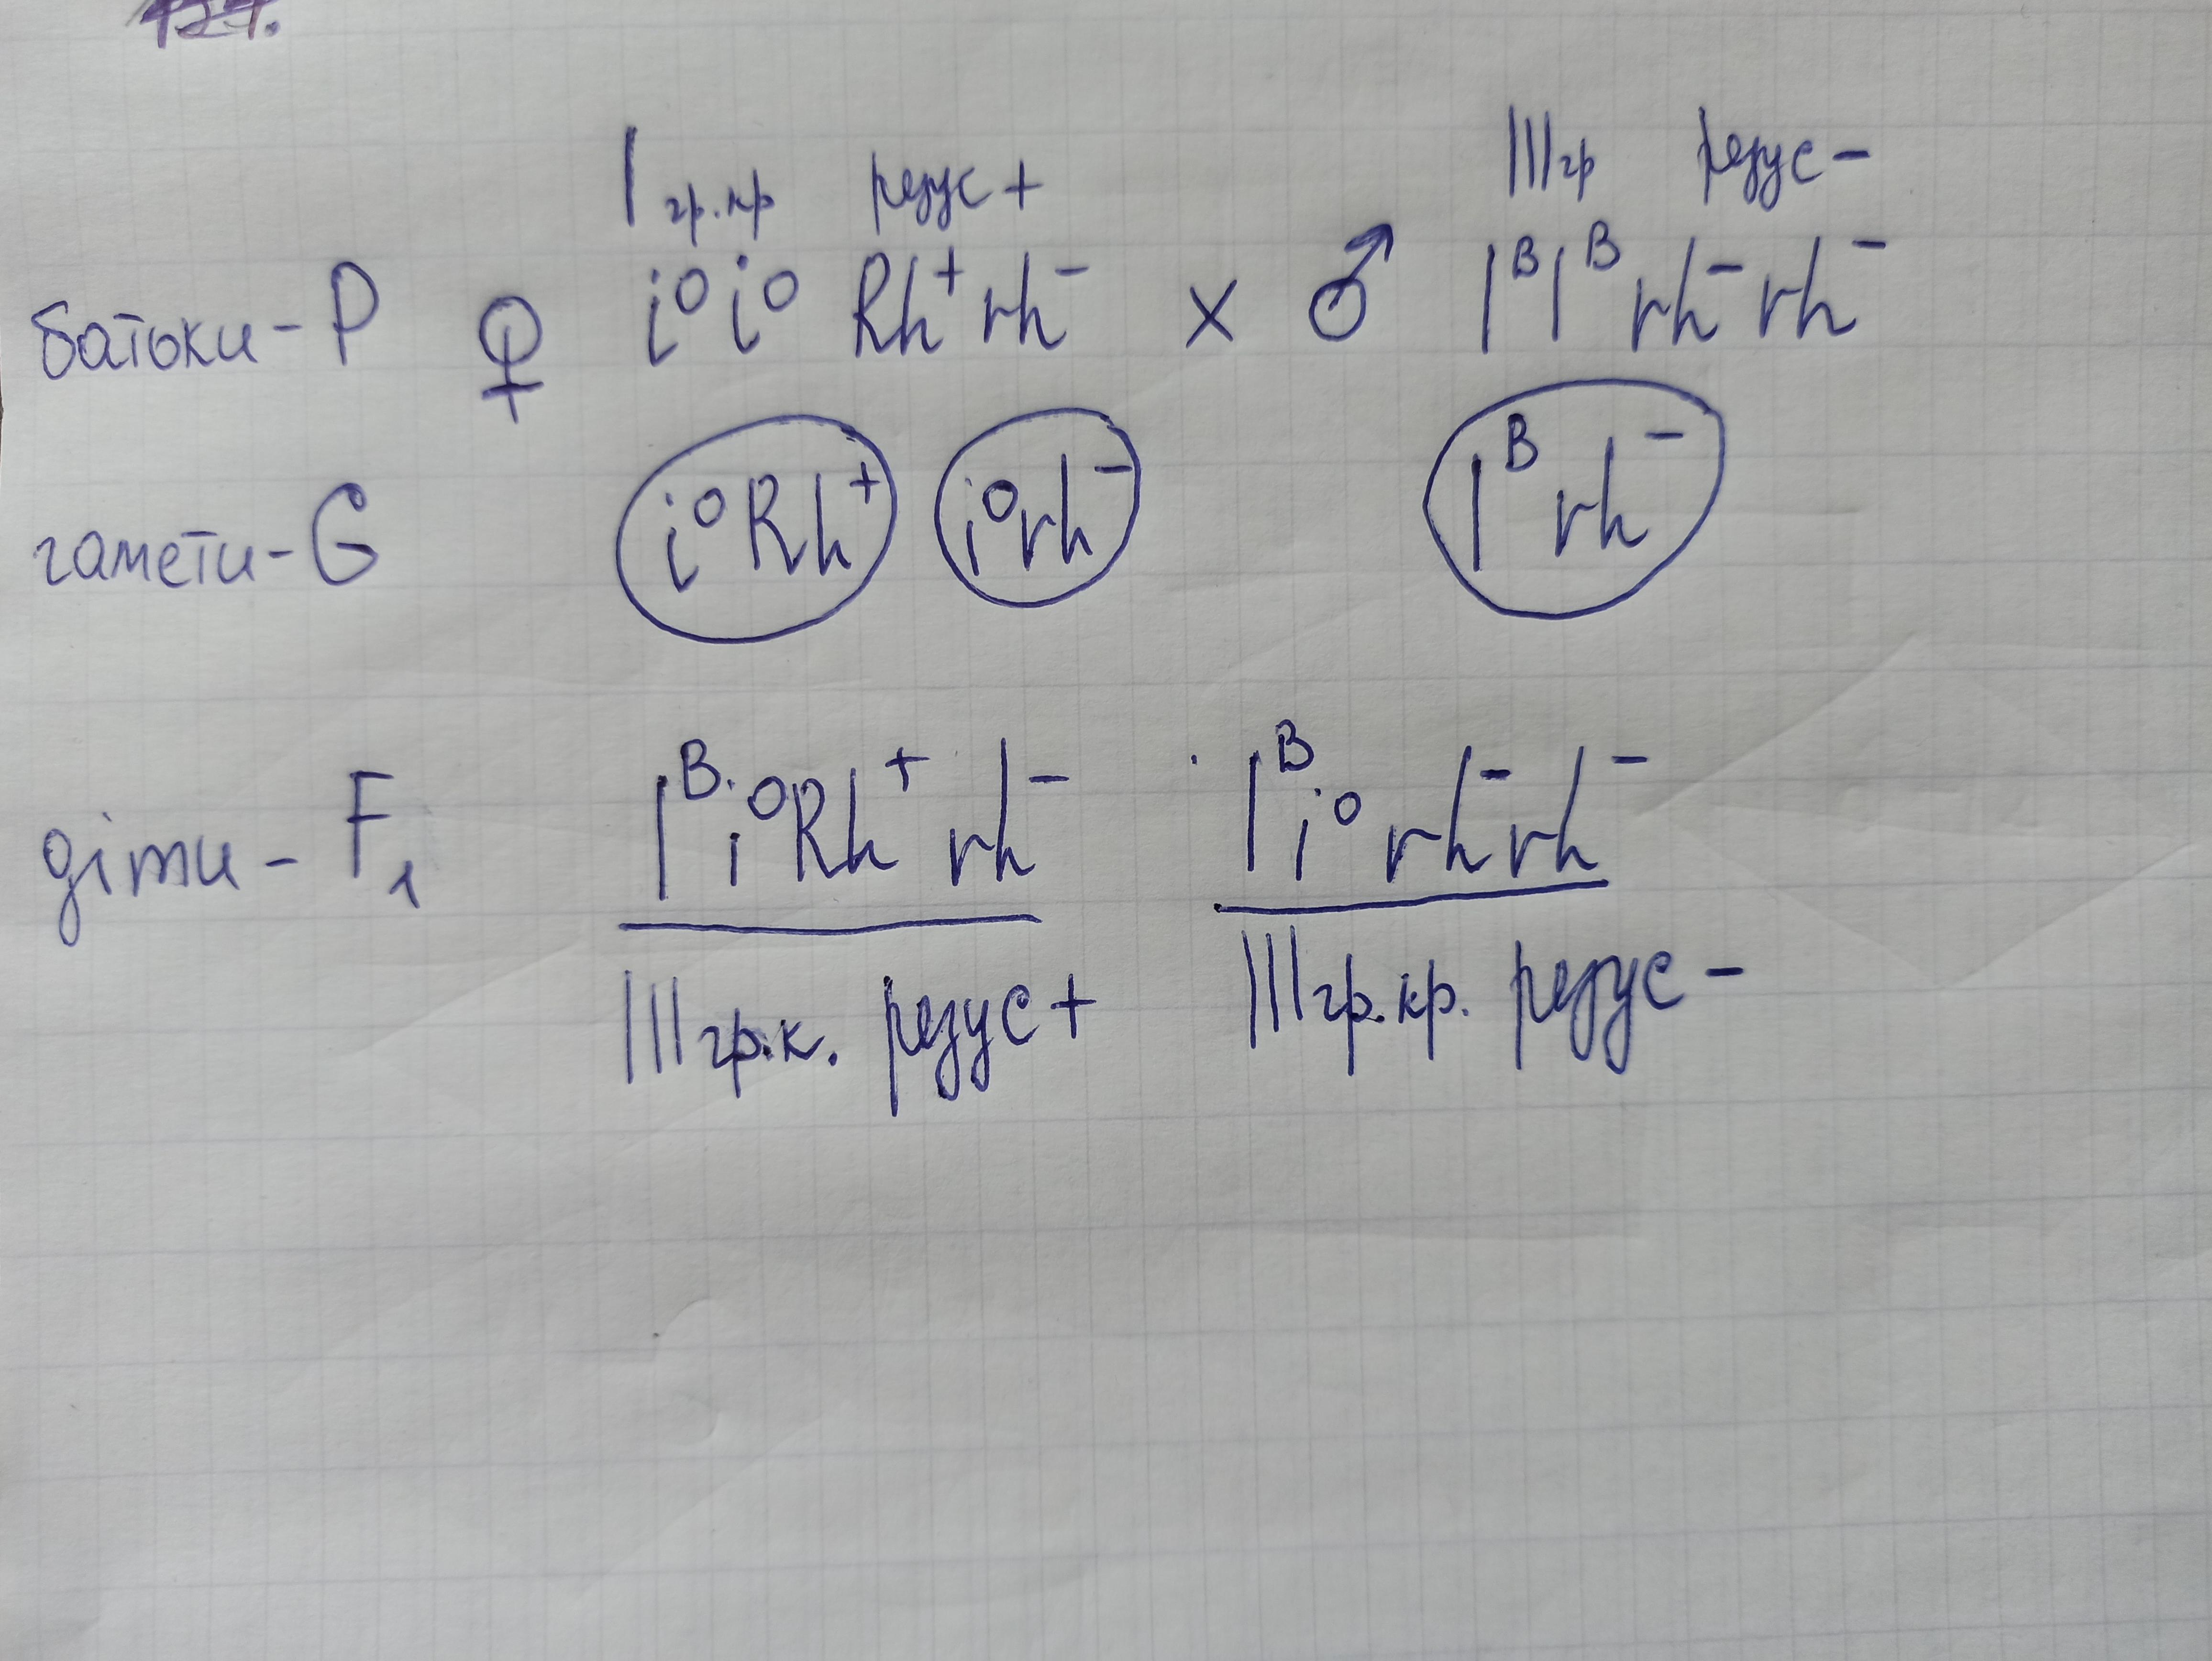 I гр.кр резус + III гр резус –
батьки - P ♀ i⁰i⁰ Rh⁺rh⁻ × ♂ IᴮIᴮ rh⁻rh⁻
гамети - G i⁰Rh⁺ i⁰rh⁻ Iᴮrh⁻
діти - F₁ Iᴮi⁰Rh⁺rh⁻ Iᴮi⁰rh⁻rh⁻
III гр.к. резус + III гр.кр. резус –